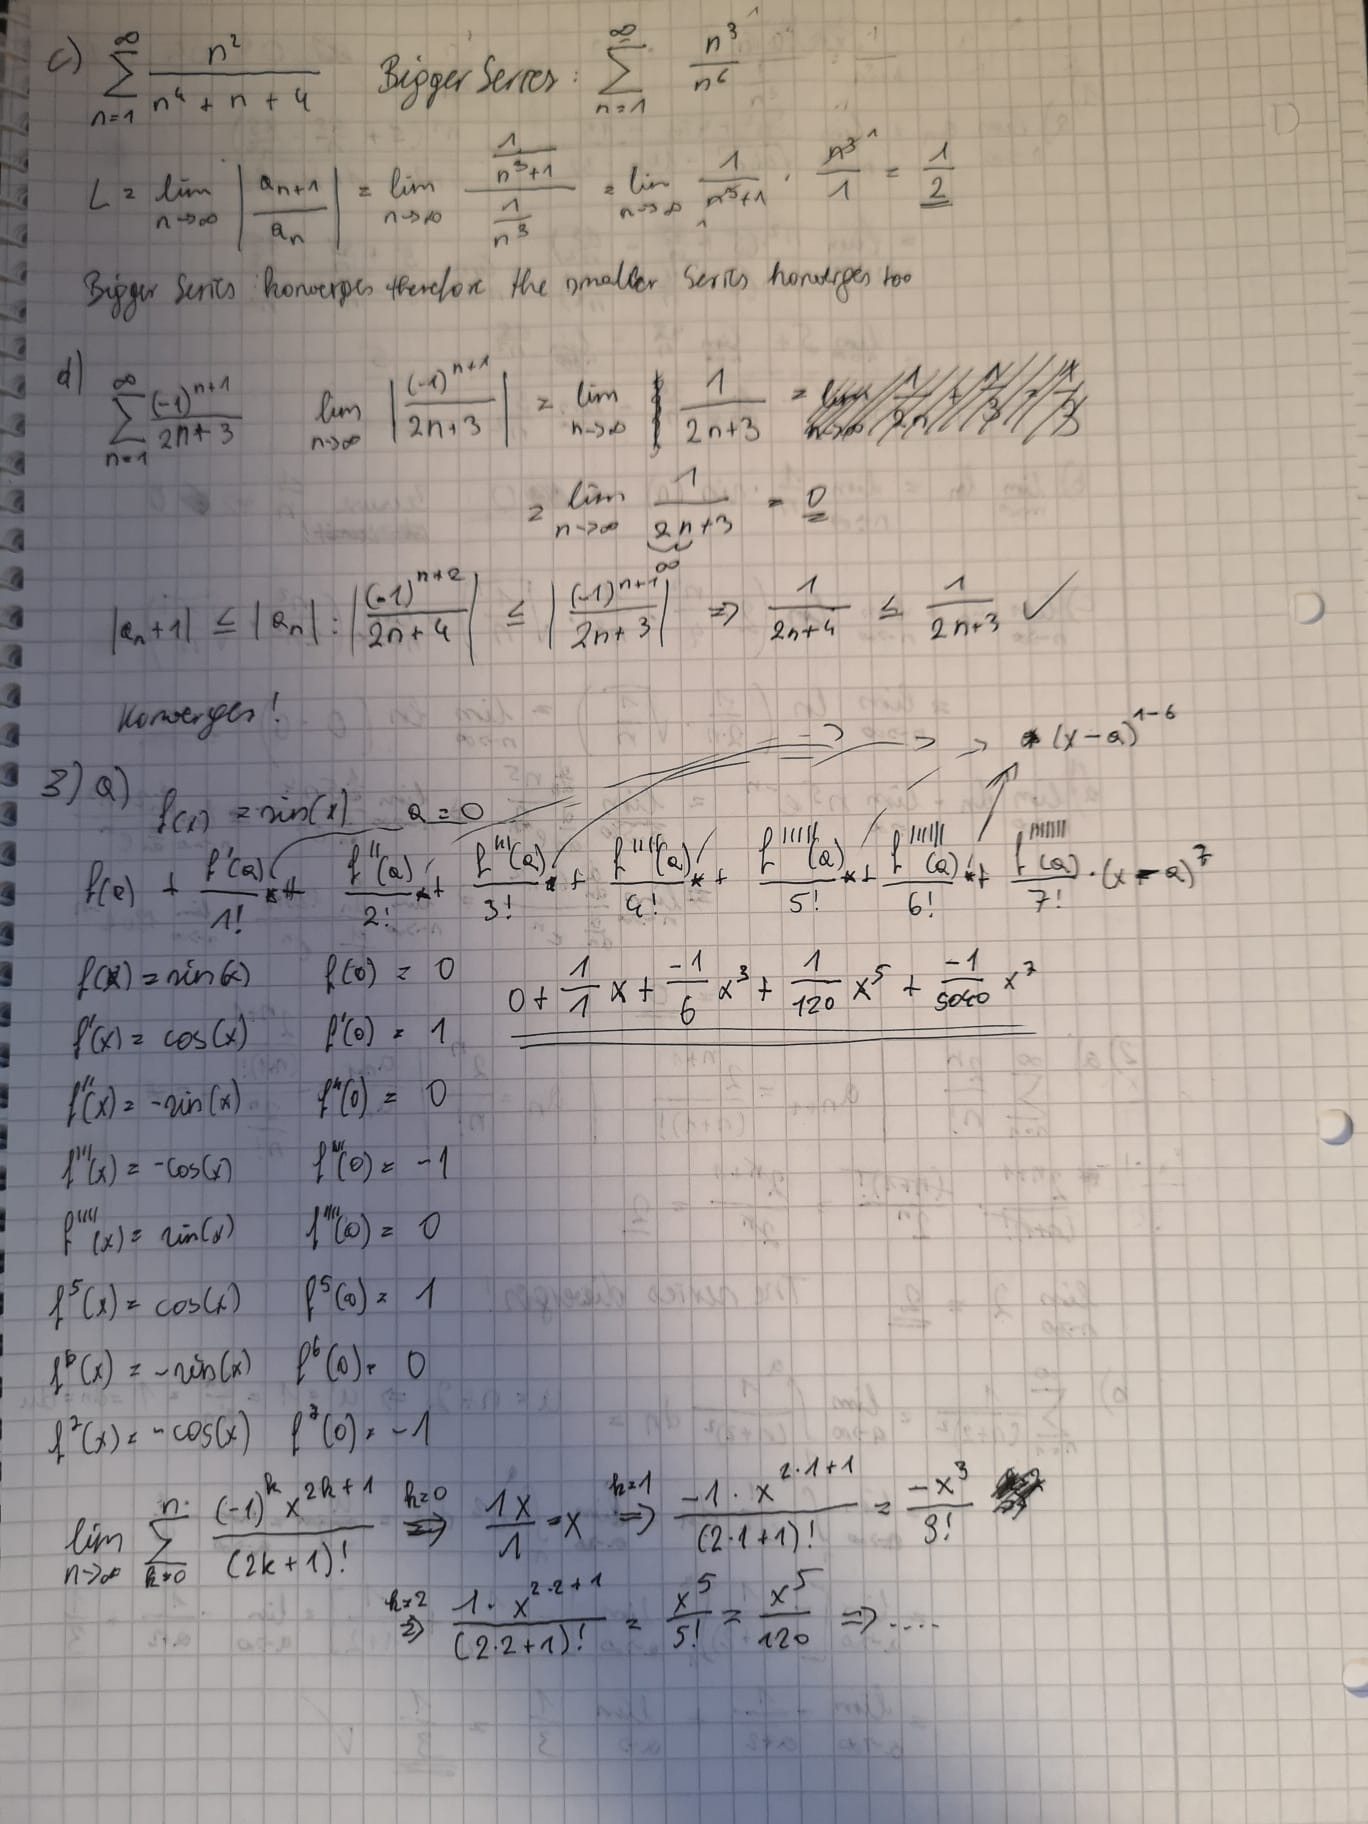 c) ∑_{n=1}^{∞} n² / (n⁴ + n + 4)   Bigger Series: ∑_{n=1}^{∞} n³ / n⁶
L = lim_{n→∞} |a_{n+1} / a_n| = lim_{n→∞} (1/(n³+1)) / (1/n³) = lim_{n→∞} 1/(n³+1) · n³/1 = 1/2
Bigger Series konverges therefore the smaller Series konverges too
d) ∑_{n=1}^{∞} (-1)^{n+1} / (2n+3)   lim_{n→∞} |(-1)^{n+1} / (2n+3)| = lim_{n→∞} 1/(2n+3) =
= lim_{n→∞} 1/(2n+3) = 0
∞
|a_n+1| ≤ |a_n| : |(-1)^{n+2} / (2n+4)| ≤ |(-1)^{n+1} / (2n+3)| ⇒ 1/(2n+4) ≤ 1/(2n+3) ✓
Konverges!
• (x-a)^{1-6}
3) a) f(x) = sin(x)   a = 0
f(a) + f'(a)/1! · + f''(a)/2! · + f'''(a)/3! · + f''''(a)/4! · + f'''''(a)/5! · + f''''''(a)/6! · + f'''''''(a)/7! · (x-a)⁷
f(x) = sin(x)   f(0) = 0   0 + 1/1 x + -1/6 x³ + 1/120 x⁵ + -1/5040 x⁷
f'(x) = cos(x)   f'(0) = 1
f''(x) = -sin(x)   f''(0) = 0
f'''(x) = -cos(x)   f'''(0) = -1
f''''(x) = sin(x)   f''''(0) = 0
f⁵(x) = cos(x)   f⁵(0) = 1
f⁶(x) = -sin(x)   f⁶(0) = 0
f⁷(x) = -cos(x)   f⁷(0) = -1
lim_{n→∞} ∑_{k=0}^{n} (-1)^k x^{2k+1} / (2k+1)! ⇒^{k=0} 1x/1 = x ⇒^{k=1} -1·x^{2·1+1} / (2·1+1)! = -x³/3!
⇒^{k=2} 1·x^{2·2+1} / (2·2+1)! = x⁵/5! = x⁵/120 ⇒ ....